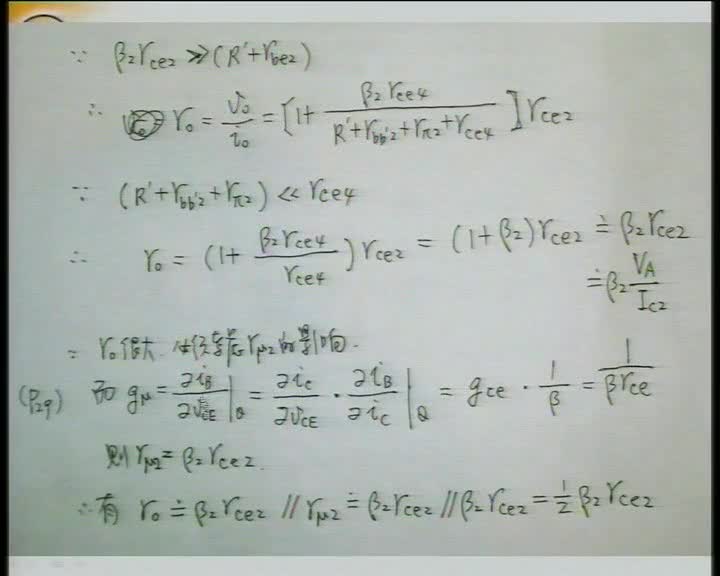 ∵ β₂r_ce2 ≫ (R'+r_be2)
∴ r₀ = v₀/i₀ = [1+ β₂r_ce4/(R'+r_bb'2+r_π2+r_ce4)]r_ce2
∵ (R'+r_bb'2+r_π2) ≪ r_ce4
∴ r₀ = (1+ β₂r_ce4/r_ce4)r_ce2 = (1+β₂)r_ce2 ≐ β₂r_ce2
≐ β₂ V_A/I_C2
∵ r₀很大 必须考虑r_μ2的影响.
(P29) 而 g_μ = ∂i_B/∂v_CE|_Q = ∂i_C/∂v_CE · ∂i_B/∂i_C|_Q = g_ce · 1/β = 1/(βr_ce)
则 r_μ2 = β₂r_ce2.
∴有 r₀ ≐ β₂r_ce2 // r_μ2 ≐ β₂r_ce2 // β₂r_ce2 = ½β₂r_ce2